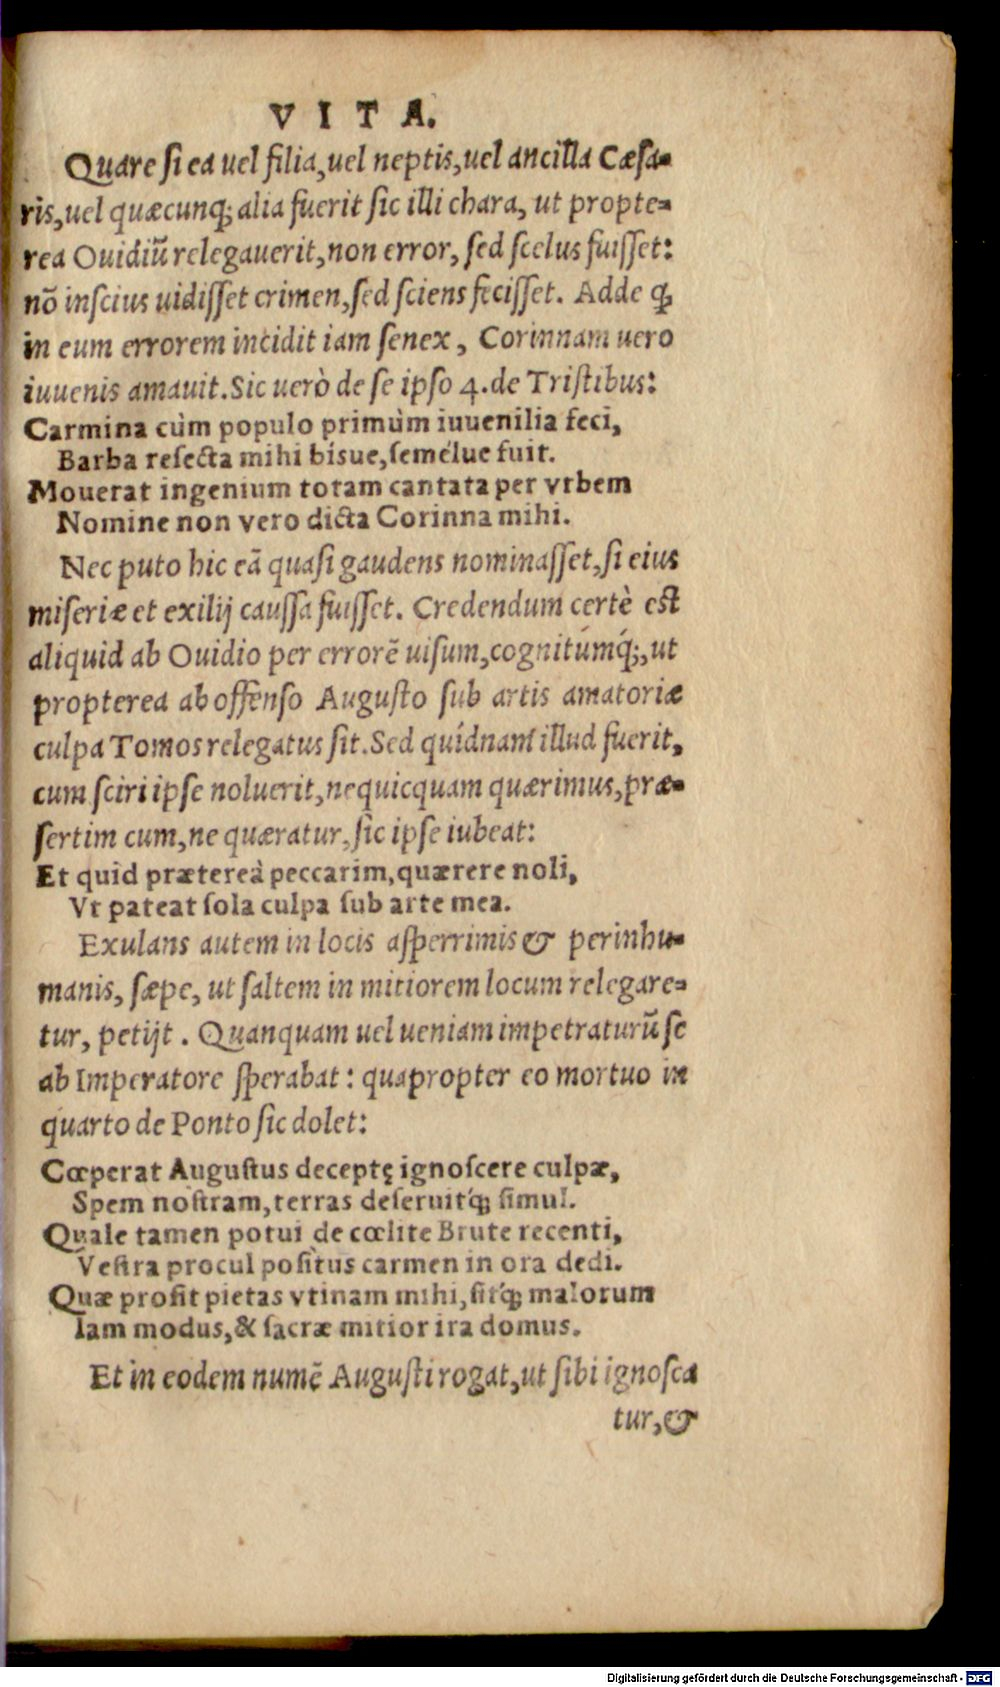 VITA.
Quare ſi ea uel filia, uel neptis, uel ancilla Cæſa-
ris, uel quæcunq; alia fuerit ſic illi chara, ut propte-
rea Ouidiũ relegauerit, non error, ſed ſcelus fuiſſet:
nõ inſcius uidiſſet crimen, ſed ſciens feciſſet. Adde ꝙ
in eum errorem incidit iam ſenex, Corinnam uero
iuuenis amauit. Sic uerò de ſe ipſo 4. de Triſtibus:
Carmina cùm populo primùm iuuenilia feci,
Barba reſecta mihi bísue, ſemélue fuit.
Mouerat ingenium totam cantata per vrbem
Nomine non vero dicta Corinna mihi.
Nec puto hic eã quaſi gaudens nominaſſet, ſi eius
miſeriæ et exilij cauſſa fuiſſet. Credendum certè eſt
aliquid ab Ouidio per errorẽ uiſum, cognitúmq́;, ut
propterea ab offenſo Auguſto ſub artis amatoriæ
culpa Tomos relegatus ſit. Sed quídnam illud fuerit,
cum ſciri ipſe noluerit, nequicquam quærimus, præ-
ſertim cum, ne quæratur, ſic ipſe iubeat:
Et quid prætereà peccarim, quærere noli,
Vt pateat ſola culpa ſub arte mea.
Exulans autem in locis aſperrimis & perinhu-
manis, ſæpe, ut ſaltem in mitiorem locum relegare-
tur, petijt. Quanquam uel ueniam impetraturũ ſe
ab Imperatore ſperabat: quapropter eo mortuo in
quarto de Ponto ſic dolet:
Cœperat Auguſtus deceptę ignoſcere culpæ,
Spem noſtram, terras deſeruitq́; ſimul.
Quale tamen potui de cœlite Brute recenti,
Veſtra procul poſitus carmen in ora dedi.
Quæ proſit pietas vtinam mihi, ſitq́; malorum
Iam modus, & ſacræ mitior ira domus.
Et in eodem numẽ Auguſti rogat, ut ſibi ignoſca
tur, &
Digitalisierung gefördert durch die Deutsche Forschungsgemeinschaft - DFG